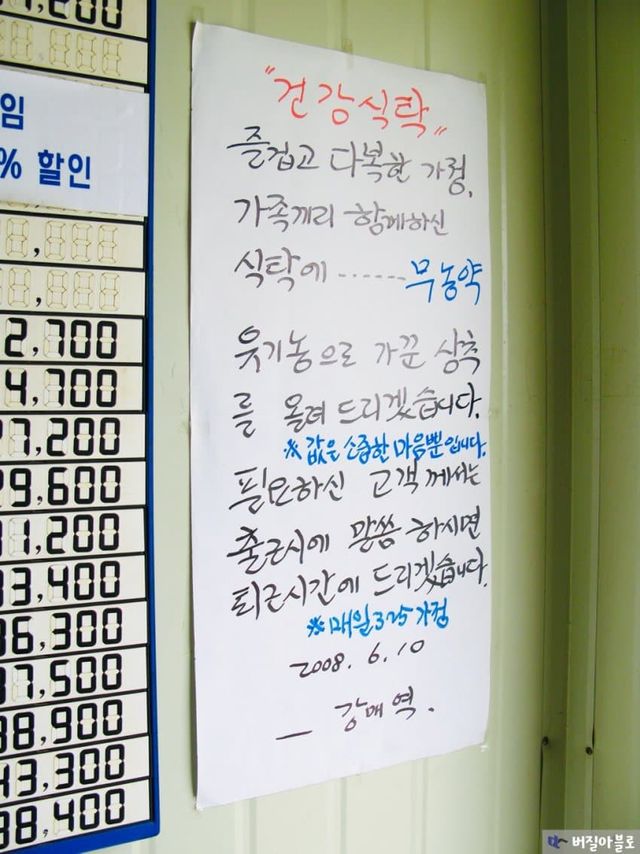 7,200
임
% 할인
8,888
8,888
2,700
4,700
7,200
29,600
31,200
33,400
36,300
37,500
38,900
43,300
38,400
"건강식탁"
즐겁고 다복한 가정,
가족끼리 함께하신
식탁에 ------ 무농약
유기농으로 가꾼 상추
를 올려 드리겠습니다.
※ 값은 소중한 마음뿐입니다.
필요하신 고객께서는
출근시에 말씀 하시면
퇴근시간에 드리겠습니다.
※ 매일 3~5 가정
2008. 6. 10
— 강매역.
버질아블로